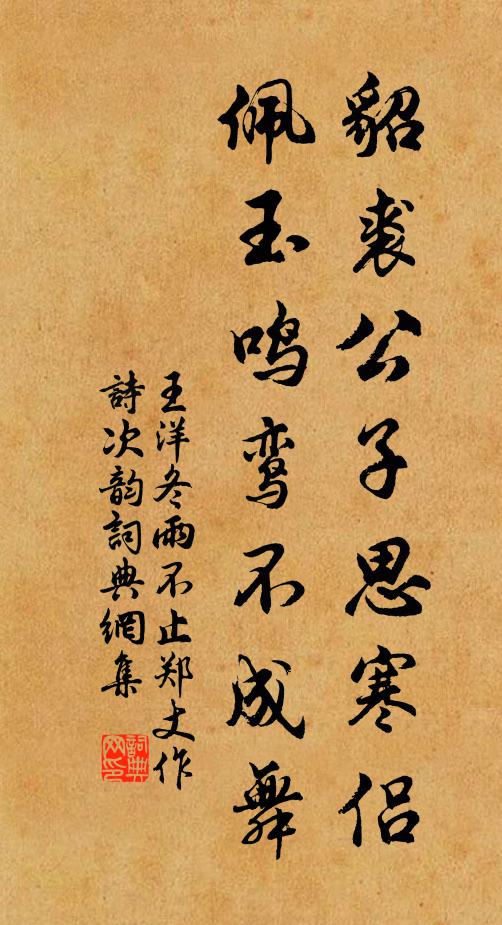 貂裘公子思寒侣
佩玉鸣鸾不成舞
王洋冬雨不止郑丈作
詩次韵詞典網集
詞典网印